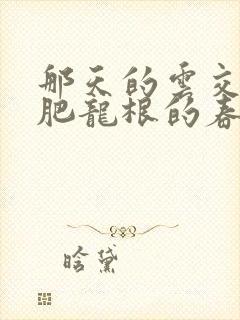 那天的雲交
肥龍根的春
晗黛